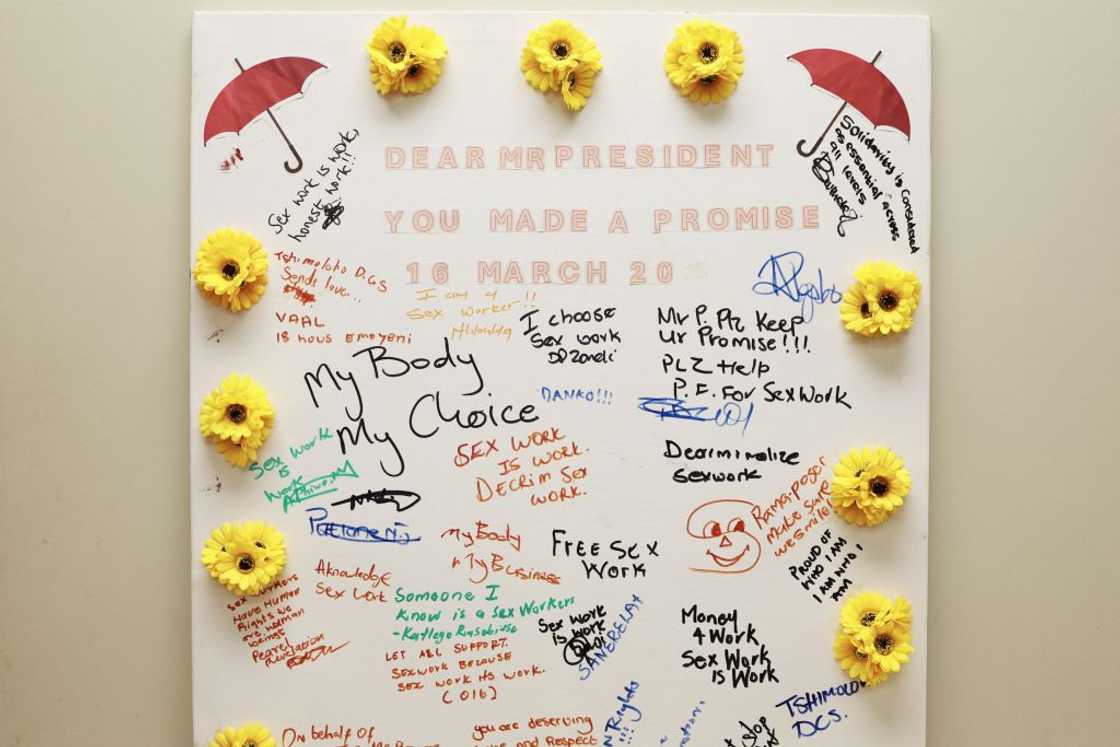 DEAR MR PRESIDENT
YOU MADE A PROMISE
16 MARCH 20
Sex work is work,
honest work!!
Solidarity is considered
as essential across
all levels
Tshimoloho D.C.S
Sends love...
VAAL
18 hous Emoyeni
I am a
Sex Worker!!
I choose
Sex work
Mr P. Plz Keep
Ur Promise!!!
PLZ Help
P.E. For Sex Work
My Body
My Choice
DANKO!!!
Sex work
is
work
SEX WORK
IS WORK.
DECRIM SEX
WORK.
Dearminalize
sexwork
Ramaposer
Make Sure
we smile!
PROUD OF
WHO I AM
I AM WHO I
AM
My Body
My Business
FREE SEX
Work
Aknowledge
Sex Work
Sex workers
Have Human
Rights we
are woman
beings
Someone I
know is a sex workers
LET ALL SUPPORT.
SEXWORK BECAUSE
SEX WORK ITS WORK.
(016)
Sex work
is work
SANERELAY
Money
4 Work
Sex Work
is Work
TSHIMOLO
DCS.
On behalf of
you are deserving
and Respect
Rights
!!!